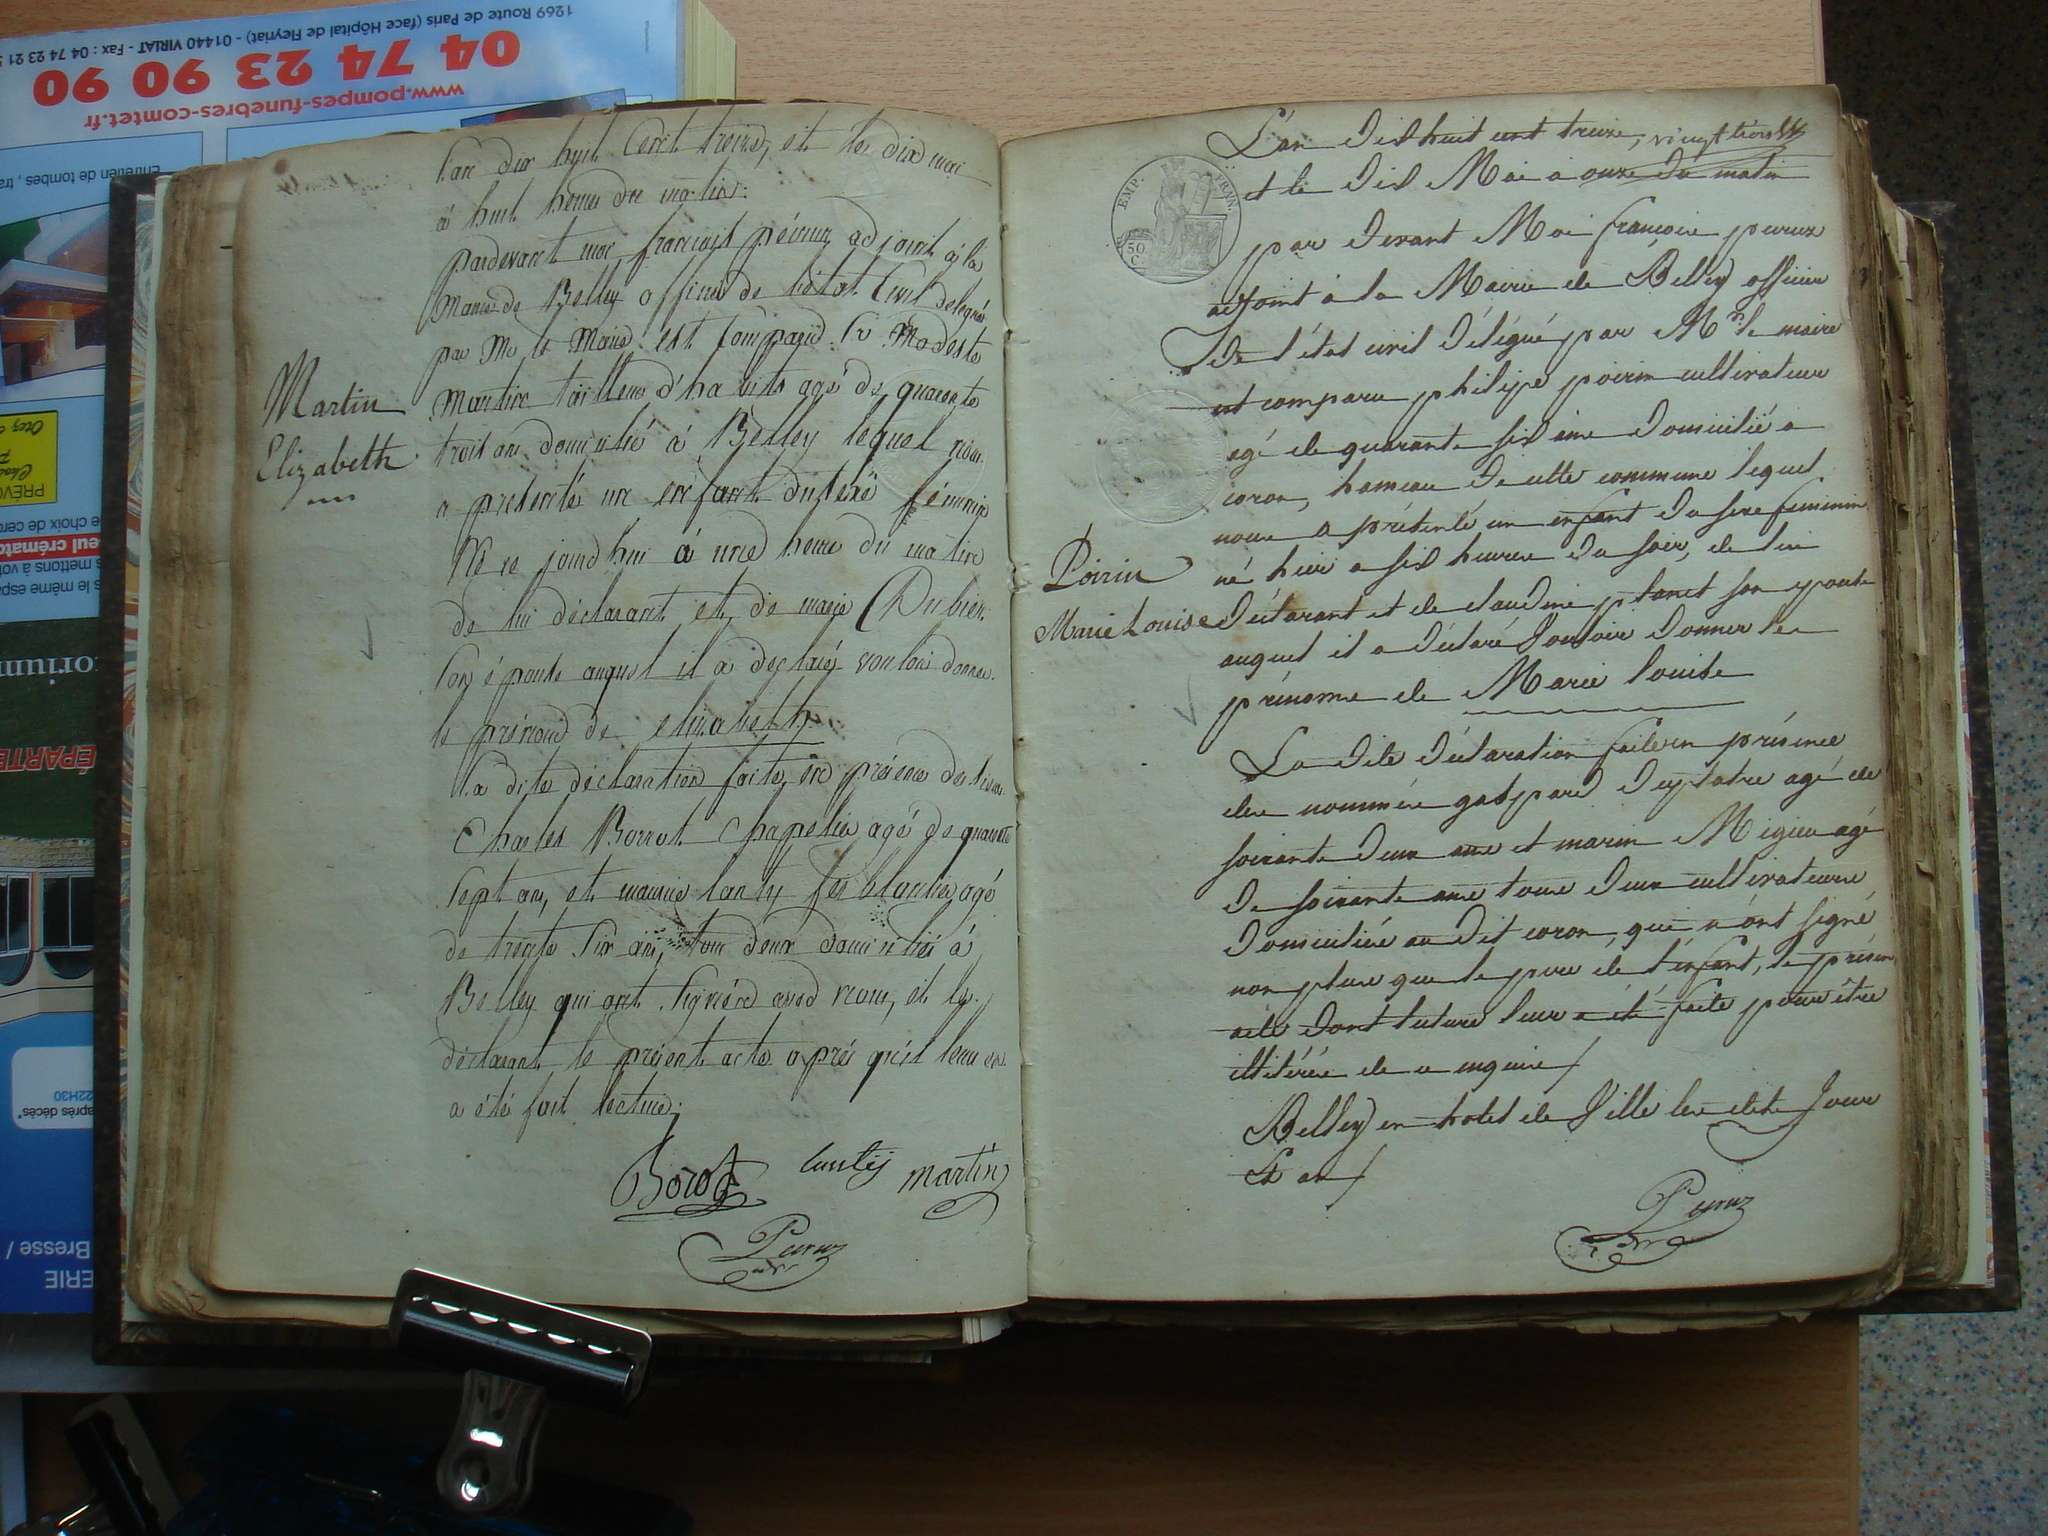 1269 Route de Paris (face Hôpital de Fleyriat) - 01440 VIRIAT - Fax : 04 74 23 21
04 74 23 90 90
www.pompes-funebres-comtet.fr
Entretien de tombes, tra
PRÉVO
e choix de cerc
eul crémato
s mettons à vot
s le même espa
orium
ÉPARTE
après décès"
22H30
Bresse /
ERIE
L'an dix huit Cent treize, et le dix mai
à huit heures du matin.
pardevant moi françois péeruz adjoint à la
Mairie de Belley officier de l'état Civil délegué
par Mr le Maire est Comparu Sr Modeste
Martin tailleur d'habits agé de quarante
trois ans domicilié à Belley lequel nous
a présenté un enfant du sexe féminin
Né ce jourd'hui à une heure du matin
de lui déclarant et de marie Dubien
Son épouse auquel il a declaré vouloir donner
le prénom de elizabeth
la dite déclaration faite en présence des sieurs
Charles Borrot Chapelier agé de quarante
Sept ans, et maurice lanty ferblantier agé
de trente Six ans, tous deux domiciliés à
Belley qui ont Signéré avec nous, et le
déclarant le présent acte après qu'il leur en
a été fait lecture.
Borot lantij martin
Peeruz
Martin
Elizabeth
EMP. FRAN.
50
C.
L'an Dix huit cent treize, vingt
et le Dix Mai a onze du matin
par devant Moi françois peeruz
adjoint a la Mairie de Belley officier
De l'état civil Délégué par Mr le maire
est comparu philipe poirin cultivateur
agé de quarante six ans Domicilié a
coron, hameau De cette commune lequel
nous a présenté un enfant Du sexe feminin
né hier a six heures Du soir, de lui
Déclarant et de claudine planet son epouse
auquel il a Déclaré Vouloir Donner les
prénoms de Marie louise
La Dite Déclaration faite en présence
des nommés gaspard Deplatre agé de
soixante Deux ans et marin Migieu agé
De soixante ans tous Deux cultivateurs
Domiciliés au Dit coron, qui n'ont signé
non plus que le pere de l'enfant, le présent
acte Dont lecture leur a été faite pour être
illitérés de ce enquis /
Belley en hotel de Ville les dits Jour
Et an /
Peeruz
Poirin
Marie Louise